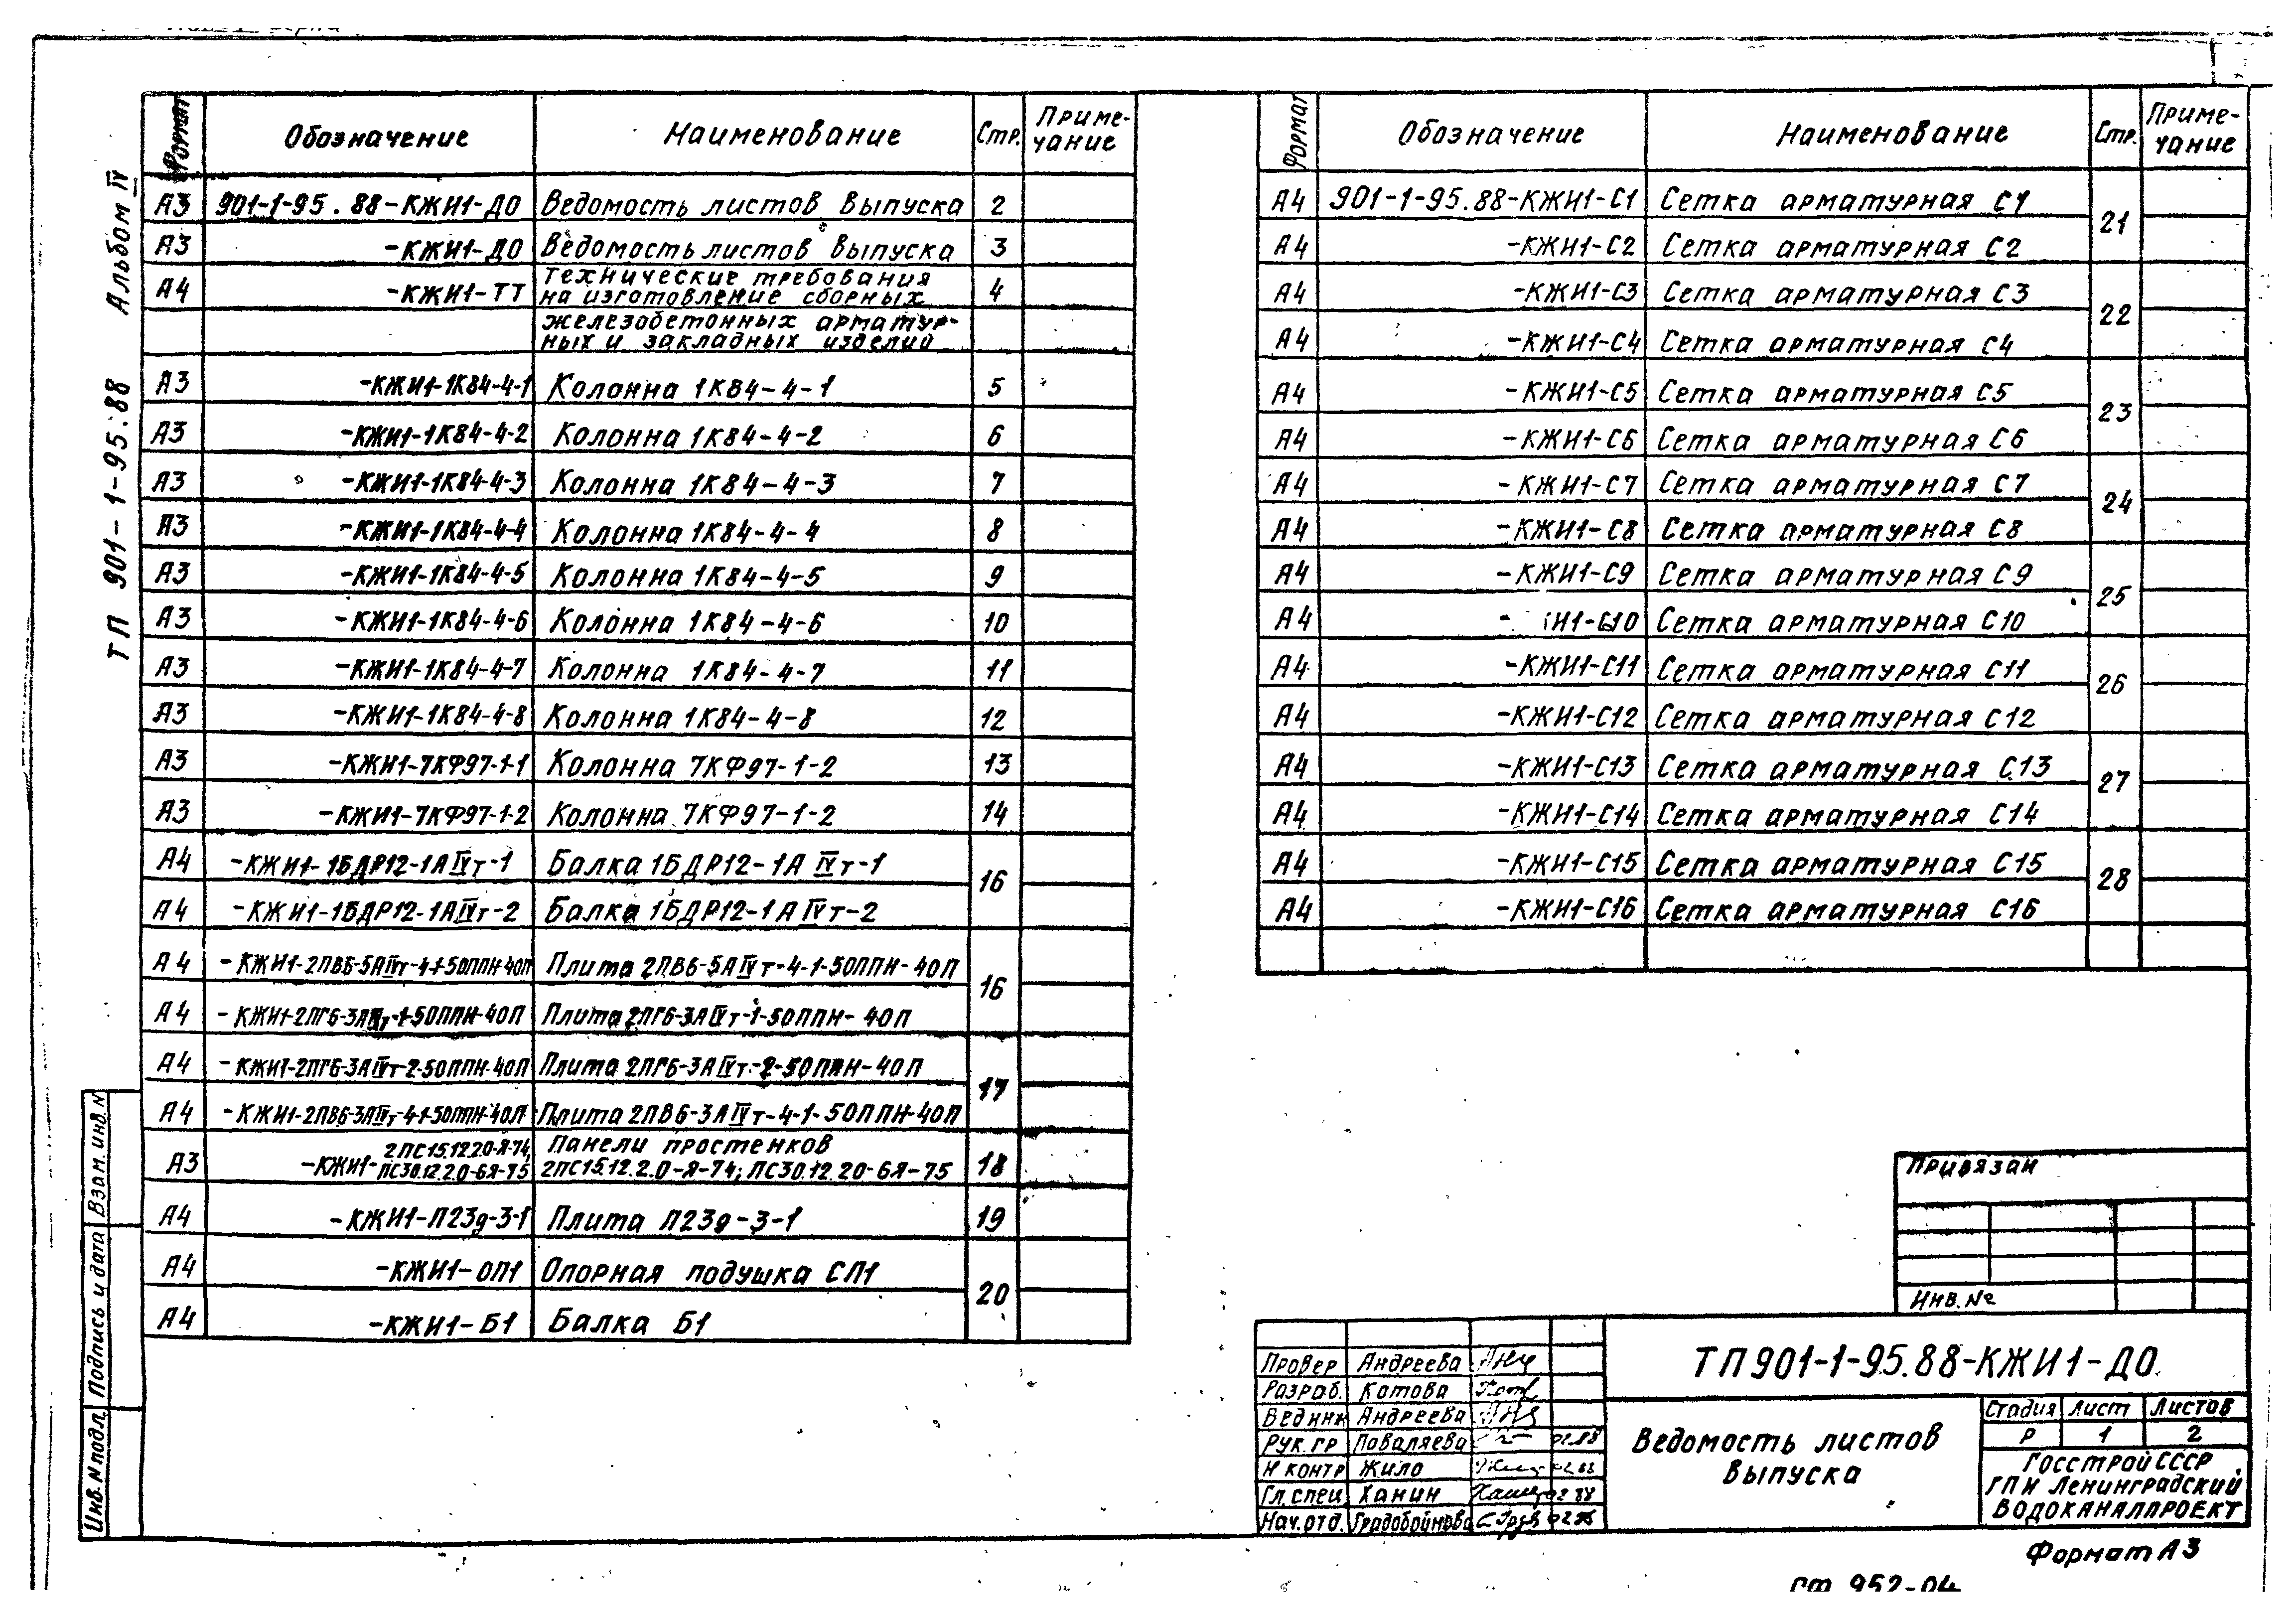 ТП 901-1-95.88 Альбом IV
Формат Обозначение Наименование Стр. Примечание
А3 901-1-95.88-КЖИ1-ДО Ведомость листов выпуска 2
А3 -КЖИ1-ДО Ведомость листов выпуска 3
А4 -КЖИ1-ТТ Технические требования 4
на изготовление сборных
железобетонных арматур-
ных и закладных изделий
А3 -КЖИ1-1К84-4-1 Колонна 1К84-4-1 5
А3 -КЖИ1-1К84-4-2 Колонна 1К84-4-2 6
А3 -КЖИ1-1К84-4-3 Колонна 1К84-4-3 7
А3 -КЖИ1-1К84-4-4 Колонна 1К84-4-4 8
А3 -КЖИ1-1К84-4-5 Колонна 1К84-4-5 9
А3 -КЖИ1-1К84-4-6 Колонна 1К84-4-6 10
А3 -КЖИ1-1К84-4-7 Колонна 1К84-4-7 11
А3 -КЖИ1-1К84-4-8 Колонна 1К84-4-8 12
А3 -КЖИ1-7КФ97-1-1 Колонна 7КФ97-1-2 13
А3 -КЖИ1-7КФ97-1-2 Колонна 7КФ97-1-2 14
А4 -КЖИ1-1БДР12-1АIVт-1 Балка 1БДР12-1АIVт-1 16
А4 -КЖИ1-1БДР12-1АIVт-2 Балка 1БДР12-1АIVт-2
А4 -КЖИ1-2ПВ6-5АIVт-4-1-50ППН-40П Плита 2ПВ6-5АIVт-4-1-50ППН-40П 16
А4 -КЖИ1-2ПГ6-3АIVт-1-50ППН-40П Плита 2ПГ6-3АIVт-1-50ППН-40П
А4 -КЖИ1-2ПГ6-3АIVт-2-50ППН-40П Плита 2ПГ6-3АIVт-2-50ППН-40П 17
А4 -КЖИ1-2ПВ6-3АIVт-4-1-50ППН-40П Плита 2ПВ6-3АIVт-4-1-50ППН-40П
А3 -КЖИ1-2ПС15.12.2.0-Я-74, ПС30.12.2.0-6Я-75 Панели простенков 18
2ПС15.12.2.0-Я-74; ПС30.12.20-6Я-75
А4 -КЖИ1-П23д-3-1 Плита П23д-3-1 19
А4 -КЖИ1-ОП1 Опорная подушка СП1 20
А4 -КЖИ1-Б1 Балка Б1
Формат Обозначение Наименование Стр. Примечание
А4 901-1-95.88-КЖИ1-С1 Сетка арматурная С1 21
А4 -КЖИ1-С2 Сетка арматурная С2
А4 -КЖИ1-С3 Сетка арматурная С3 22
А4 -КЖИ1-С4 Сетка арматурная С4
А4 -КЖИ1-С5 Сетка арматурная С5 23
А4 -КЖИ1-С6 Сетка арматурная С6
А4 -КЖИ1-С7 Сетка арматурная С7 24
А4 -КЖИ1-С8 Сетка арматурная С8
А4 -КЖИ1-С9 Сетка арматурная С9 25
А4 Сетка арматурная С10
А4 -КЖИ1-С11 Сетка арматурная С11 26
А4 -КЖИ1-С12 Сетка арматурная С12
А4 -КЖИ1-С13 Сетка арматурная С13 27
А4 -КЖИ1-С14 Сетка арматурная С14
А4 -КЖИ1-С15 Сетка арматурная С15 28
А4 -КЖИ1-С16 Сетка арматурная С16
Привязан
Инв. №
Инв. N подл. Подпись и дата Взам. инв. N
Провер Андреева
Разраб. Котова
Вед инж Андреева
Рук. гр Поваляева 02.88
Н контр Жило 02.88
Гл. спец Ханин 02 88
Нач. отд. Градобойнова
ТП901-1-95.88-КЖИ1-ДО
Ведомость листов
выпуска
Стадия Лист Листов
Р 1 2
Госстрой СССР
ГПИ Ленинградский
ВОДОКАНАЛПРОЕКТ
Формат А3
952-04